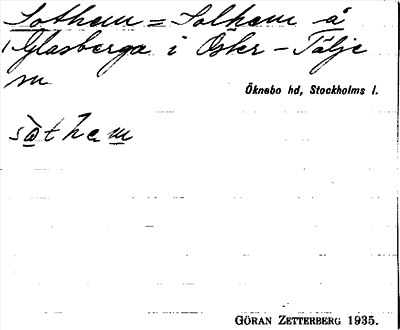 Sothem = Solhem å
Glasberga i Öster-Tälje
sn
Öknebo hd, Stockholms l.
sὰthem
GÖRAN ZETTERBERG 1935.